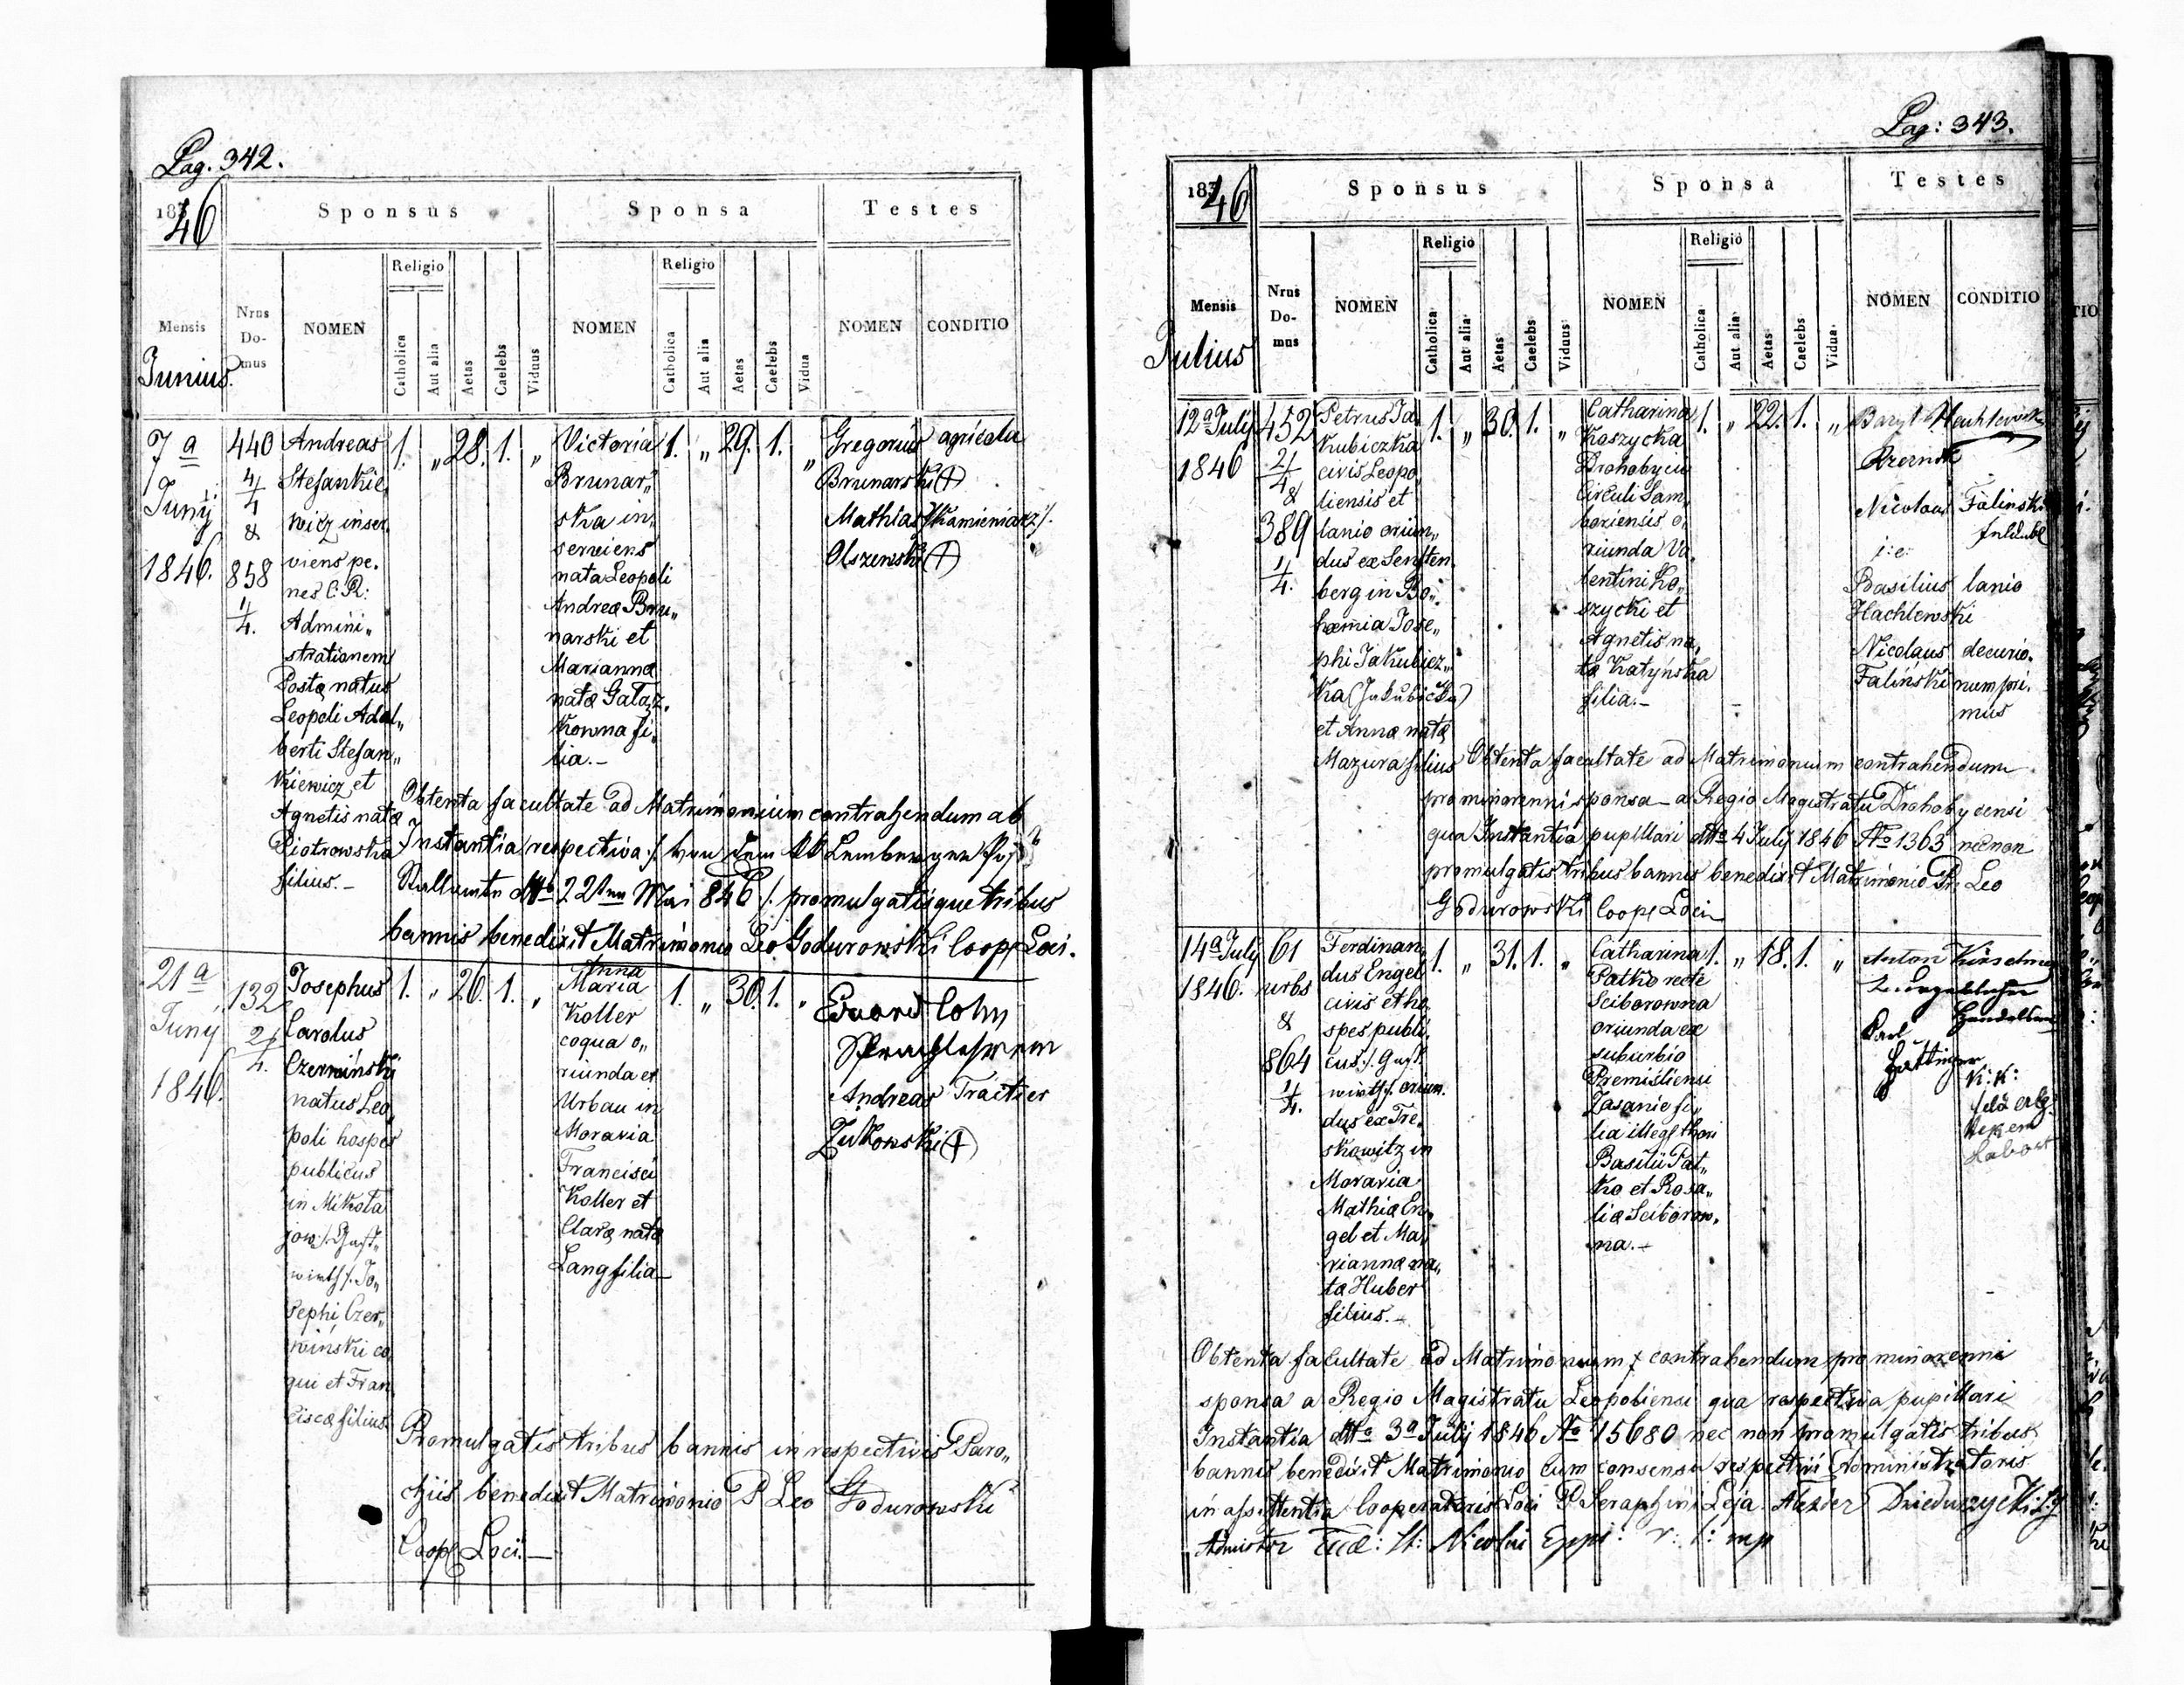 Pag. 342.
1846
Sponsus
Sponsa
Testes
Mensis
Junius.
Nrus Do-mus
NOMEN
Religio
Catholica
Aut alia
Aetas
Caelebs
Viduus
NOMEN
Religio
Catholica
Aut alia
Aetas
Caelebs
Vidua
NOMEN
CONDITIO
7a
Juny
1846.
440
4/4
&
858
1/4.
Andreas
Stefankie,
wicz inser,
viens pe.
nes C: R:
Admini„
strationem
Postæ natus
Leopoli Adal„
berti Stefan„
kiewicz et
Agnetis natæ
Piotrowska
filius.-
1. „ 28. 1. „
Victoria
Brunar„
ska in,
serviens
nata Leopoli
Andreæ Bru„
narski et
Marianna
natæ Gałąz,
kowna fi,
lia.-
1. „ 29. 1. „
Gregorius agricola
Brunarski (+)
Mathias /:Kamieniarz:/.
Olszewski (+)
Obtenta facultate ad Matrimonium contrahendum ab
Instantia respectiva :/ von dem kk Lemberger
dtto 22ten Mai 846 /: promulgatisque tribus
bannis benedixit Matrimonio Leo Godurowski Coop Loci.
21a
Juny
1846.
132
2/4.
Josephus
Carolus
Czerwiński
natus Leo,
poli hospes
publicus
in Mikoła
jow :/. Gast„
wirth /. Jo„
sephi Czer„
wiński co
qui et Fran
ciscæ filius.
1. „ 26. 1. „
Anna
Maria
Koller
coqua o„
riunda ex
Urbau in
Moravia
Francisci
Koller et
Claræ natæ
Lang filia-
1. „ 30. 1. „
Eduard Cohn
Andreas Traitier
Żukowski (+)
Promulgatis tribus bannis in respectivis Paro„
chiis benedixit Matrimonio P Leo Godurowski
Coop Loci.-
Pag: 343.
1846
Sponsus
Sponsa
Testes
Mensis
Julius
Nrus Do-mus
NOMEN
Religio
Catholica
Aut alia
Aetas
Caelebs
Viduus
NOMEN
Religio
Catholica
Aut alia
Aetas
Caelebs
Vidua
NOMEN
CONDITIO
12a July
1846
452
2/4
&
389
1/4.
Petrus Ja
kubiczka
civis Leopo,
liensis et
lanio oriun„
dus ex Senften
berg in Bo„
hæmia Jose„
phi Jakubicz„
ka (Jakubička)
et Annæ natæ
Mazura filius
1. „ 30. 1. „
Catharina
Koszycka
Drohobycii
Circuli Sam„
boriensis o,
riunda Va,
lentini Ko„
szycki et
Agnetis na,
tæ Katyńska
filia.-
1. „ 22. 1. „
Bazyl Hachlewski
Rzeznik
Nicolaus Falinski
i: e:
Basilius lanio
Hachlewski
Nicolaus decurio.
Faliński num pri.
mus
Obtenta facultate ad Matrimonium contrahendum
pro minorenni sponsa a Regio Magistratu Drohobycensi
qua Instantia pupillari dtto 4 July 1846 No 1363 nec non
promulgatis tribus bannis benedixit Matrimonio P Leo
Godurowski Coop Loci-
14a July
1846.
61
urbs
&
864
1/4.
Ferdinan„
dus Engel
civis et ho
spes publi,
cus /. Gast
wirth /. oriun.
dus ex Tre„
skowitz in
Moravia
Mathiæ En„
gel et Ma,
riannæ na„
tæ Huber
filius.-
1. „ 31. 1. „
Catharina
Patko recte
Sciborowna
oriunda ex
suburbio
Premisliensi
Zasanie fi„
lia illeg thori
Basilii Pat„
ko et Rosa„
liæ Sciborow.
na.-
1. „ 18. 1. „
Anton Kirschner
Karl
Hattinger
K: K:
Obtenta facultate ad Matrimonium contrahendum pro minorenni
sponsa a Regio Magistratu Leopoliensi qua respectiva pupillari
Instantia dtto 3a July 1846 No 15680 nec non promulgatis tribus
bannis benedixit Matrimonio cum consensu respectivi Administratoris
in assistentia Cooperatoris Loci P Seraphini Leja Alexder Dzieduszycki
Admistor Eccl: St: Nicolai Eppi: r: l: mp